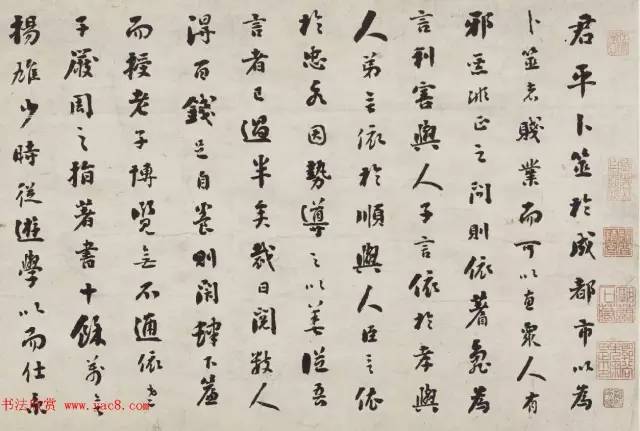 君平卜筮於成都市以為
卜筮者賤業而可以惠眾人有
邪惡非正之問則依蓍龜為
言利害與人子言依於孝與
人弟言依於順與人臣言依
於忠各因勢導之以善從吾
言者已過半矣裁日閱數人
得百錢足自養則閉肆下簾
而授老子博覽無不通依老
子嚴周之指著書十餘萬言
楊雄少時從遊學以而仕京
书法欣赏
www.yac8.com